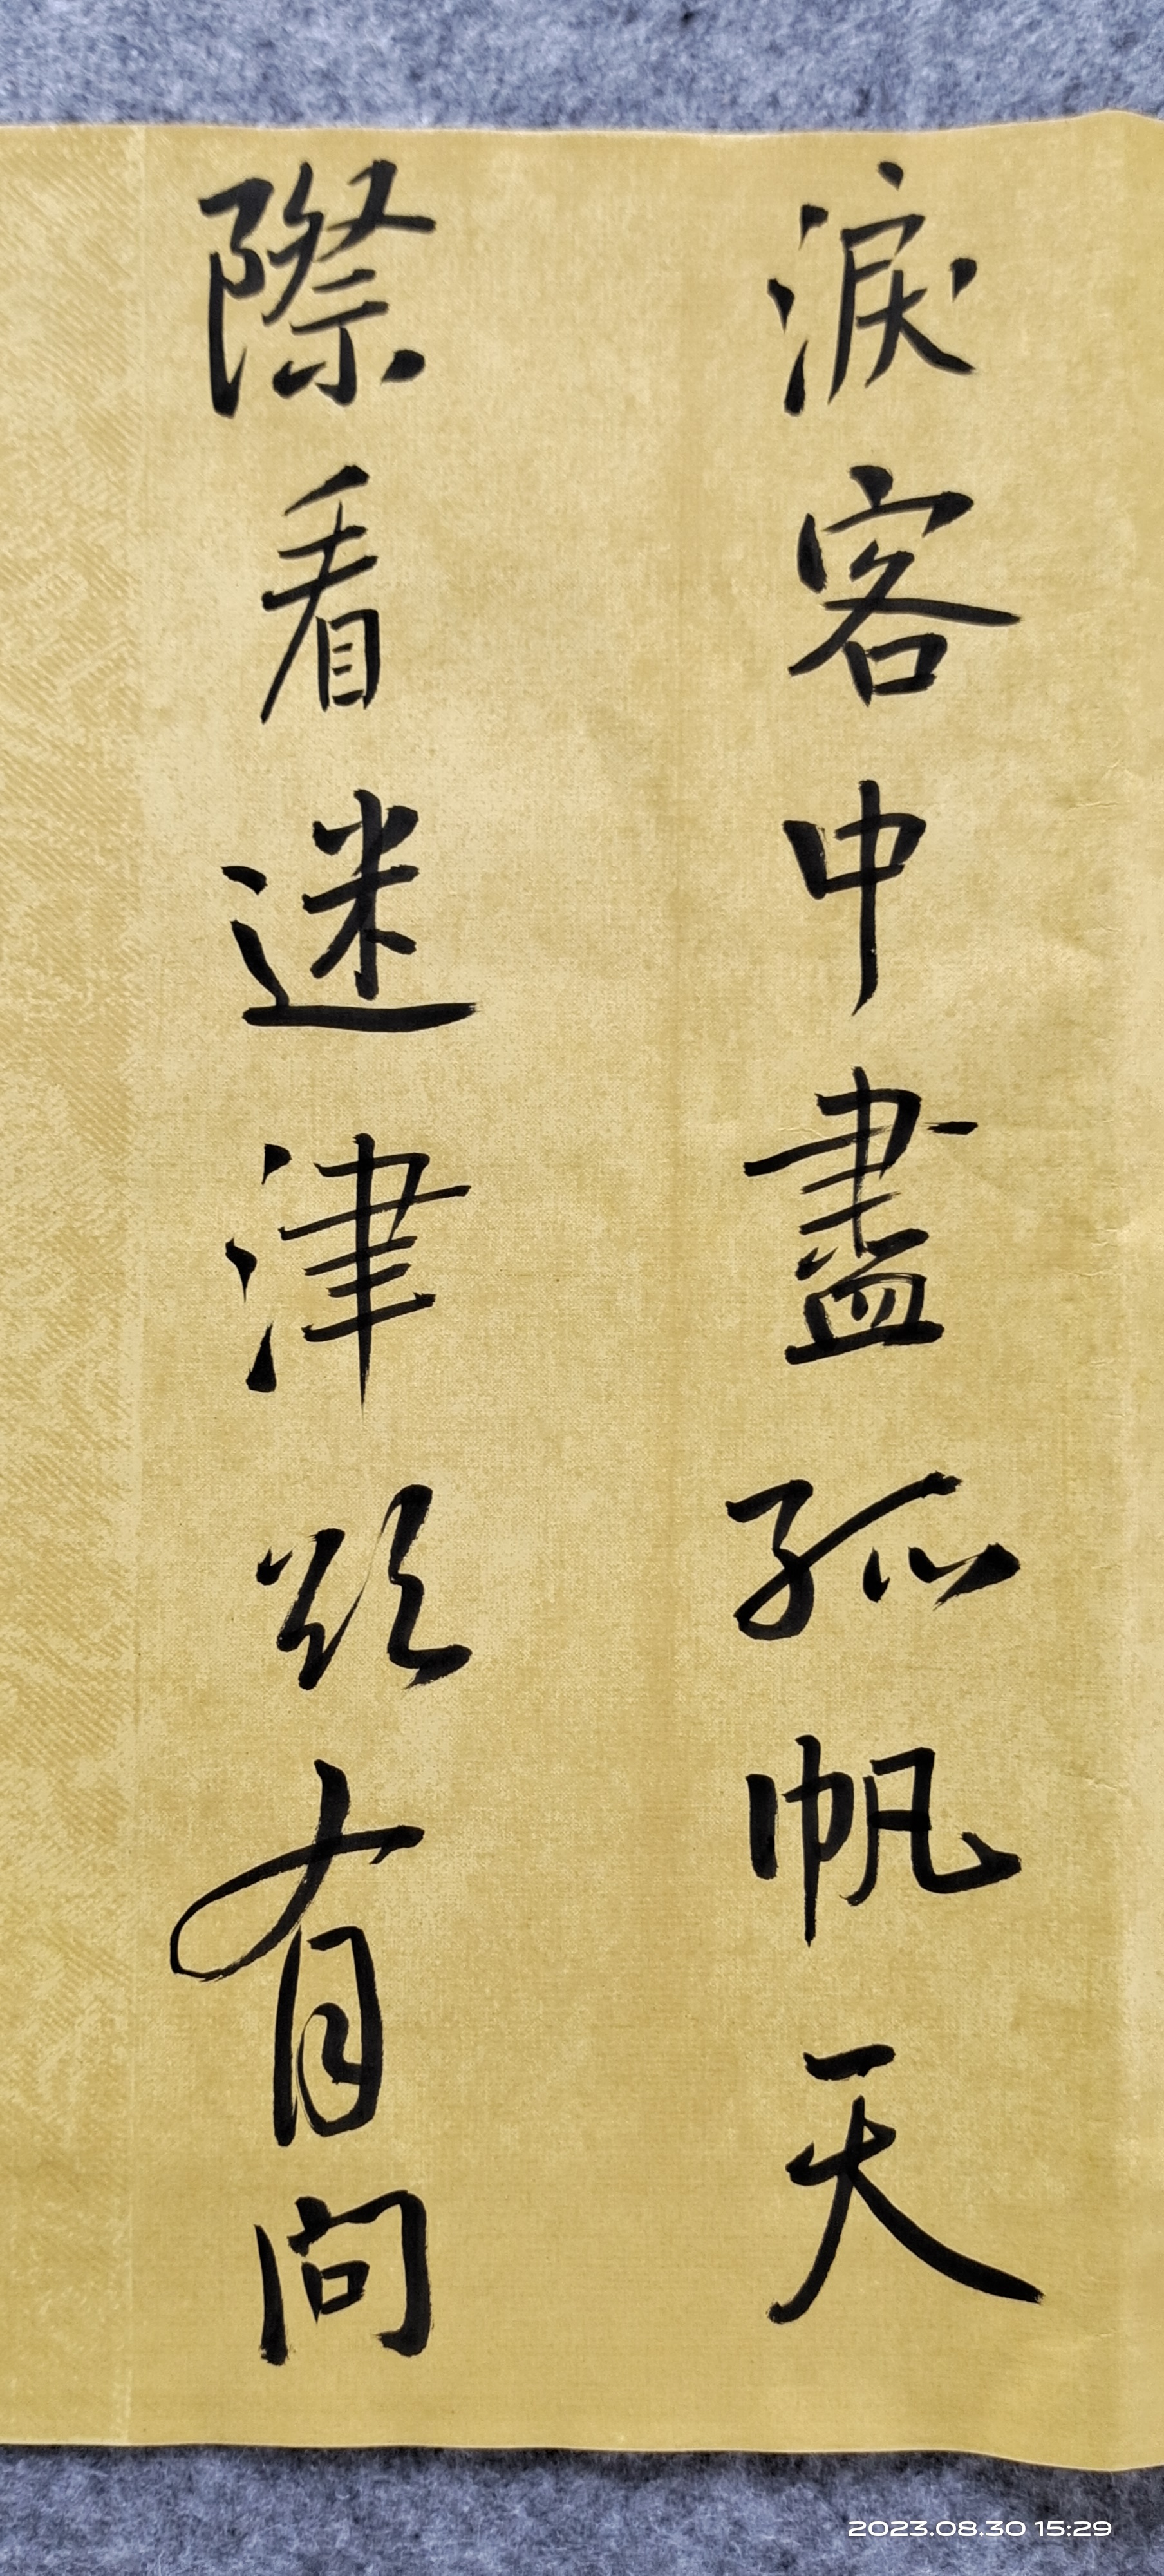 淚客中盡孤帆天
際看迷津欲有問
2023.08.30 15:29